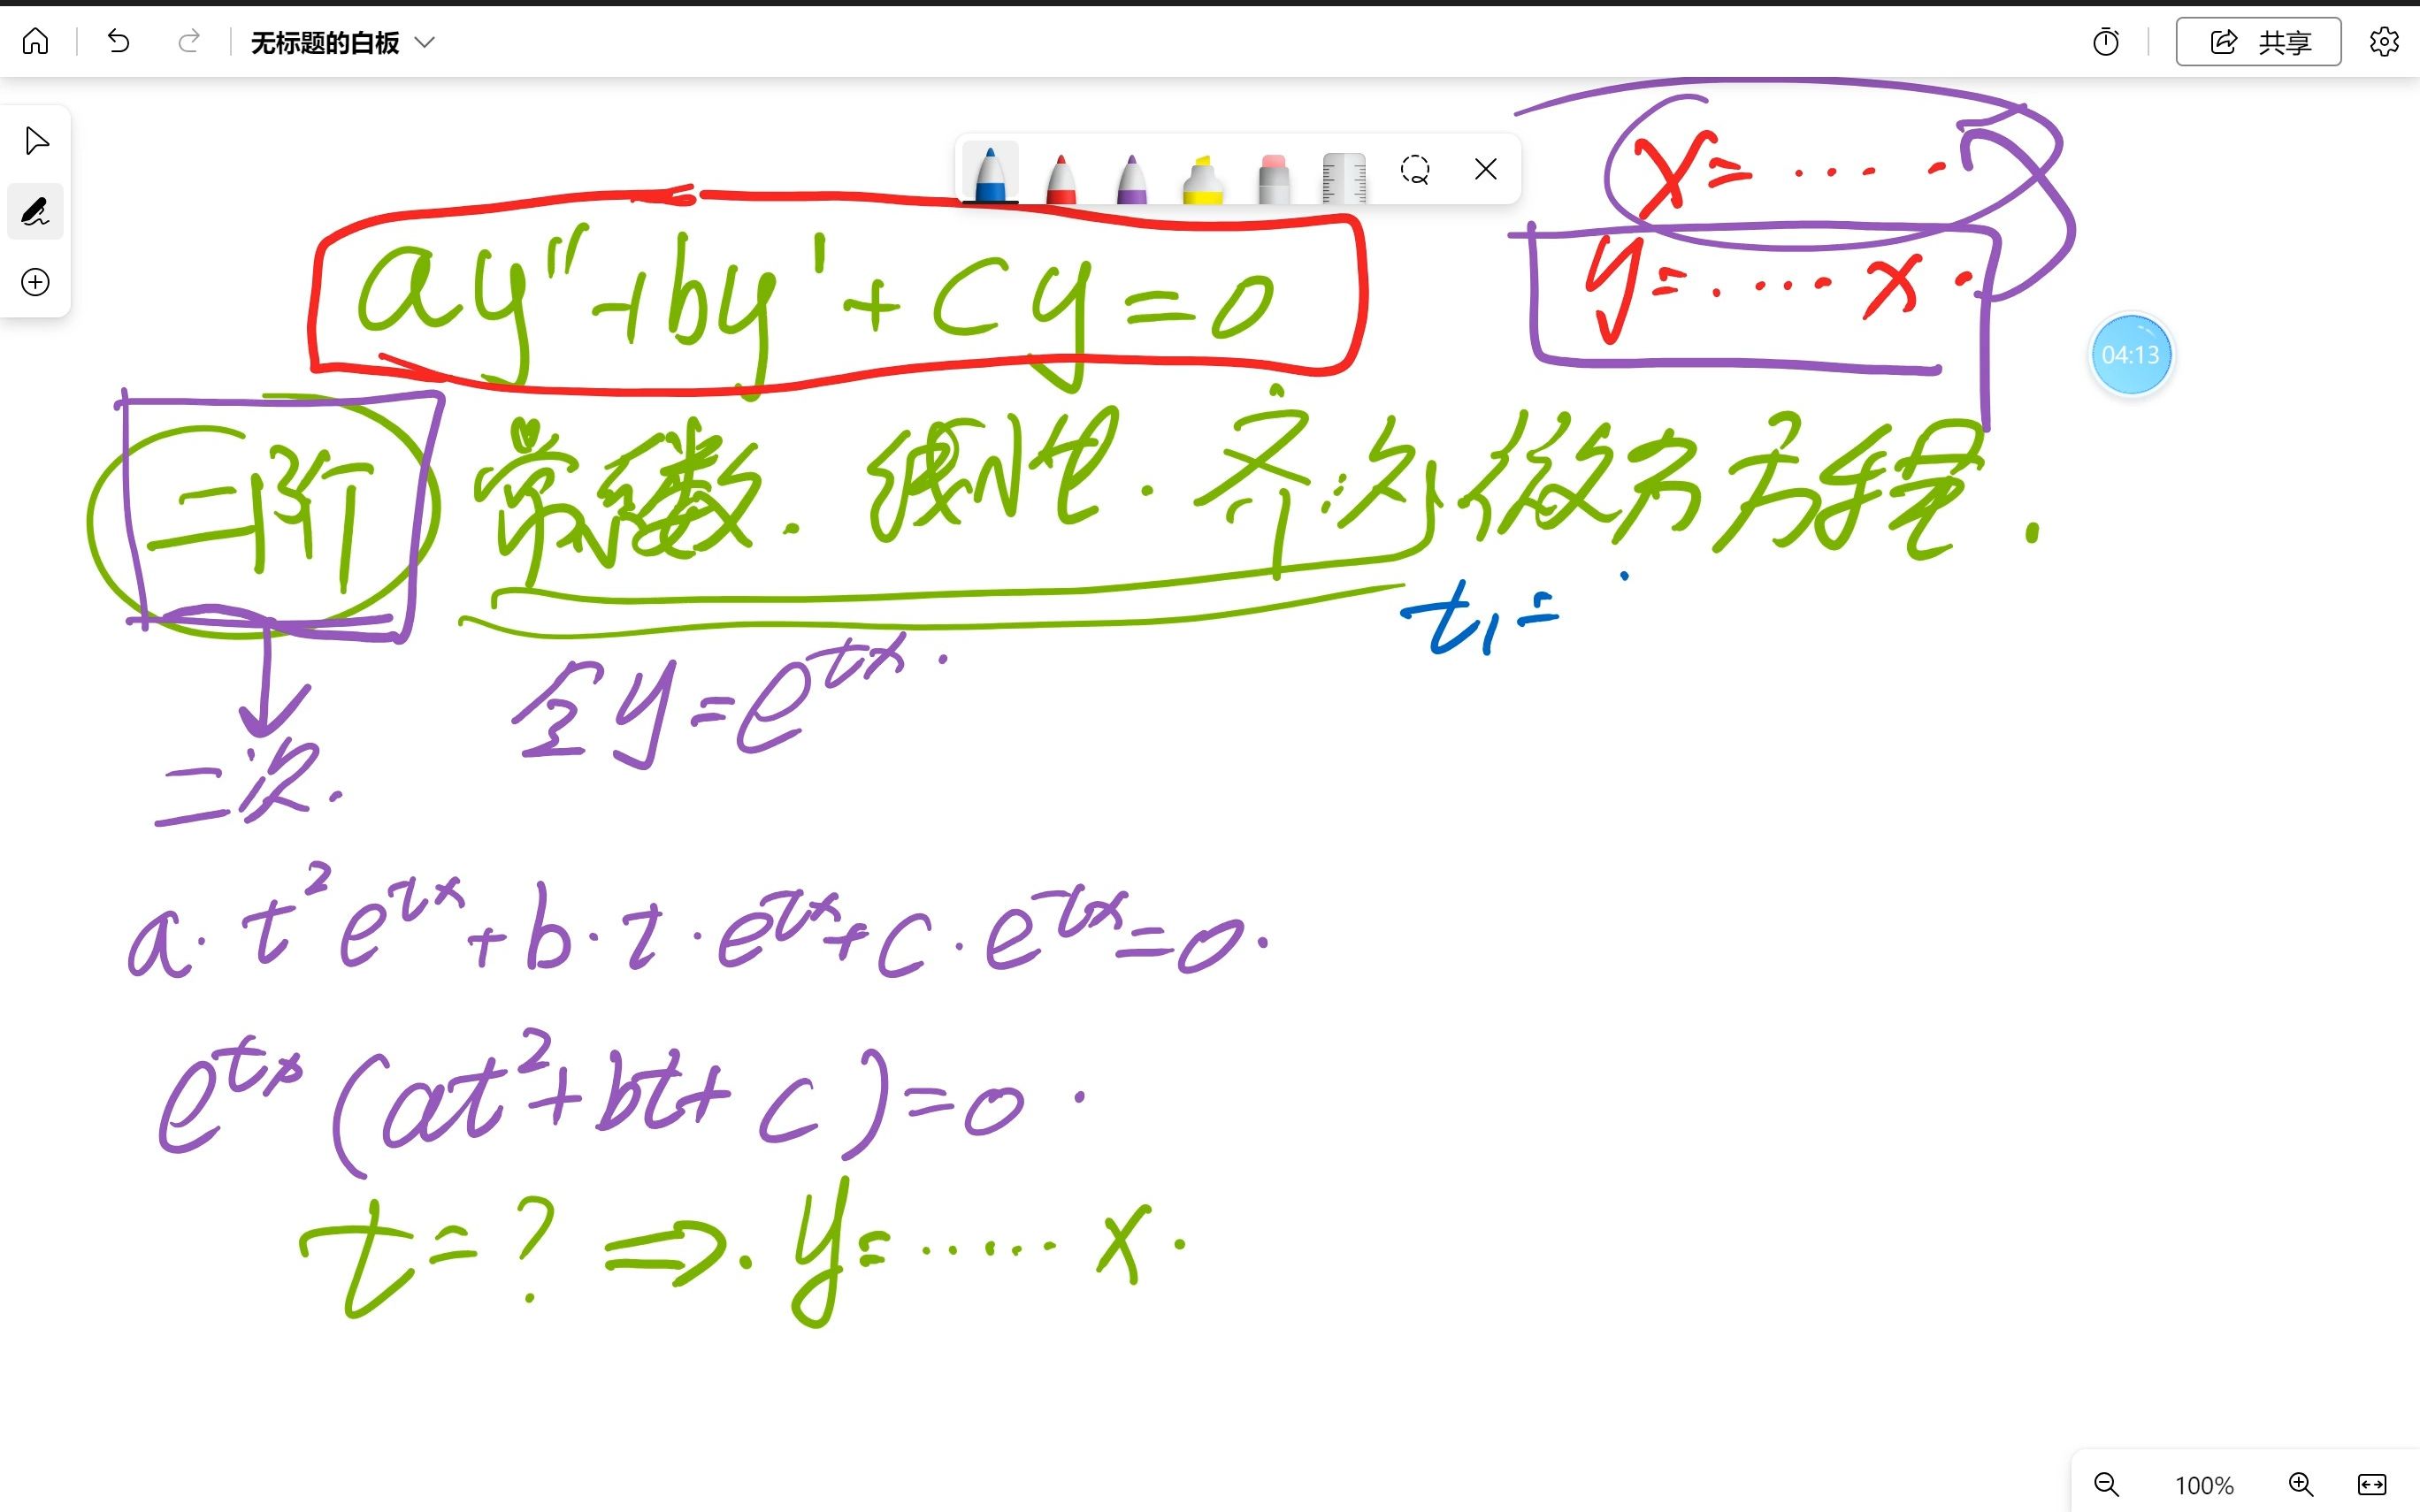 无标题的白板
共享
x= ……
ay''+by'+cy=0
y= …… x.
04:13
二阶 常系数. 线性. 齐次 微分方程.
t₁=
令y=e^{tx}.
二次.
a·t²e^{tx}+b·t·e^{tx}+c·e^{tx}=0.
e^{tx}(at²+bt+c)=0.
t=? ⇒. y= …… x.
100%